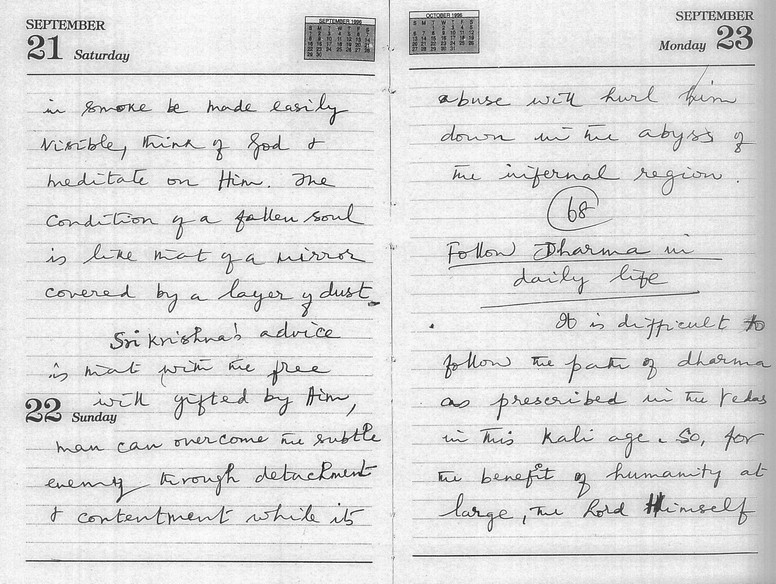 SEPTEMBER
21 Saturday
SEPTEMBER 1996
in smoke be made easily
visible, think of God &
meditate on Him. The
condition of a fallen soul
is like that of a mirror
covered by a layer of dust.
Sri Krishna's advice
is that with the free
will gifted by Him,
22 Sunday
man can overcome the subtle
enemy through detachment
& contentment while its
OCTOBER 1996
SEPTEMBER
Monday 23
abuse will hurl him
down in the abyss of
the infernal region.
68
Follow Dharma in
daily life
It is difficult to
follow the path of dharma
as prescribed in the Vedas
in this Kali age. So, for
the benefit of humanity at
large, the Lord Himself